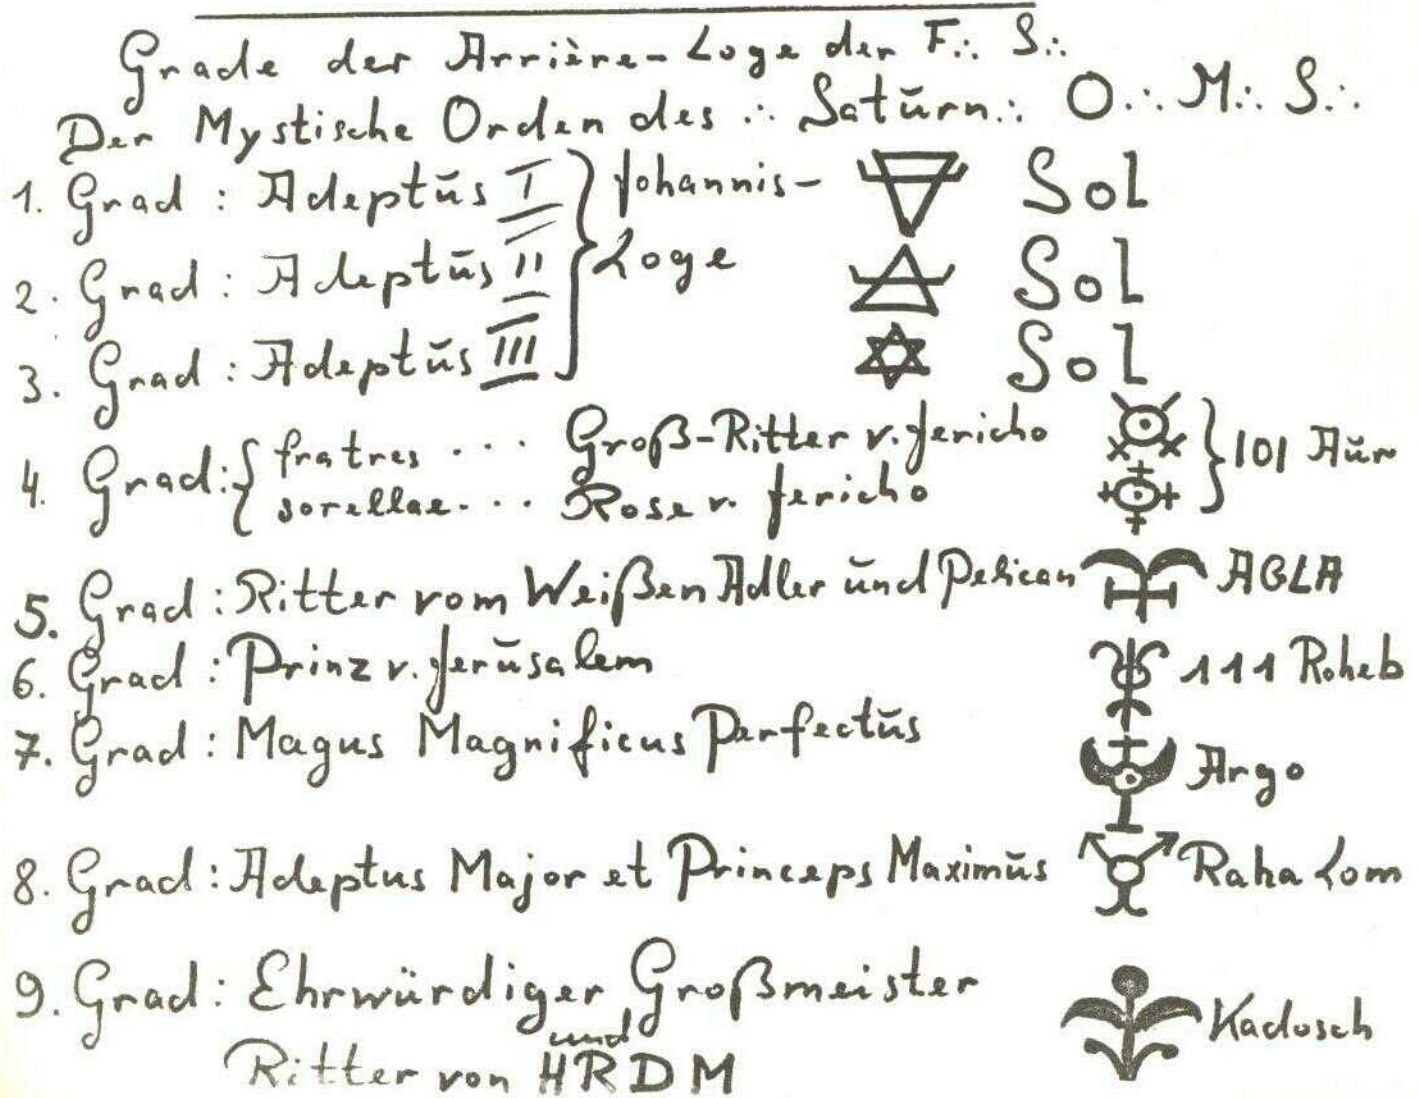 Grade der Arrière-Loge der F∴ S∴
Der Mystische Orden des ∴ Saturn ∴ O∴ M∴ S∴
1. Grad : Adeptus I } Johannis- Sol
2. Grad : Adeptus II } Loge Sol
3. Grad : Adeptus III } Sol
4. Grad : { fratres ... Groß-Ritter v. Jericho } 101 Aur
sorellae ... Rose v. Jericho
5. Grad : Ritter vom Weißen Adler und Pelican AGLA
6. Grad : Prinz v. Jerusalem 111 Roheb
7. Grad : Magus Magnificus Perfectus Argo
8. Grad : Adeptus Major et Princeps Maximus Raha Lom
9. Grad : Ehrwürdiger Großmeister Kadosch
und
Ritter von HRDM